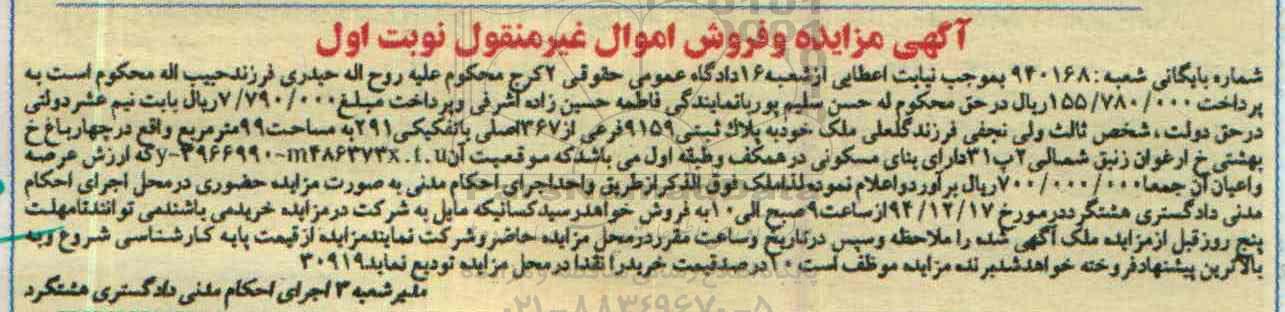 آگهی مزایده وفروش اموال غیرمنقول نوبت اول
شماره بایگانی شعبه: ۹۴۰۱۶۸ بموجب نیابت اعطایی ازشعبه۱۶دادگاه عمومی حقوقی ۲کرج محکوم علیه روح اله حیدری فرزندحبیب اله محکوم است به
پرداخت ۱۵۵/۷۸۰/۰۰۰ریال درحق محکوم له حسن سلیم پورباتمایندگی فاطمه حسین زاده اشرفی وپرداخت مبلغ۷/۷۹۰/۰۰۰ریال بابت نیم عشردولتی
درحق دولت، شخص ثالث ولی نجفی فرزندگلعلی ملک خودبه پلاک ثبتی۹۱۵۹فرعی از۳۶۷اصلی باتفکیکی۲۹۱به مساحت۹۹مترمربع واقع درچهارباغ خ
بهشتی خ ارغوان زنبق شمالی۲پ۳۱دارای بنای مسکونی درهمکف وطبقه اول می باشدکه موقعیت آنy-۳۹۶۶۹۹۰-m۴۸۶۳۷۳x.t.uکه ارزش عرصه
واعیان آن جمعا۷۰۰/۰۰۰/۰۰۰ریال برآوردواعلام نموده‌لذاملک فوق الذکرازطریق واحداجرای احکام مدنی به صورت مزایده حضوری درمحل اجرای احکام
مدنی دادگستری هشتگرددرمورخ ۹۴/۱۲/۱۷ازساعت۹صبح الی۱۰به فروش خواهدرسیدکسانیکه مایل به شرکت درمزایده خریدمی باشندمی توانندتامهلت
پنج روزقبل ازمزایده ملک آگهی شده را ملاحظه وسپس درتاریخ وساعت مقرردرمحل مزایده حاضروشرکت نمایندمزایده ازقیمت پایه کارشناسی شروع وبه
بالاترین پیشنهادفروخته خواهدشدبرنده مزایده موظف است۱۰درصدقیمت خریدرا نقدا درمحل مزایده تودیع نماید۳۰۹۱۹
مدیرشعبه ۳ اجرای احکام مدنی دادگستری هشتگرد
۰۲۱-۸۸۳۴۹۶۷۰-۵